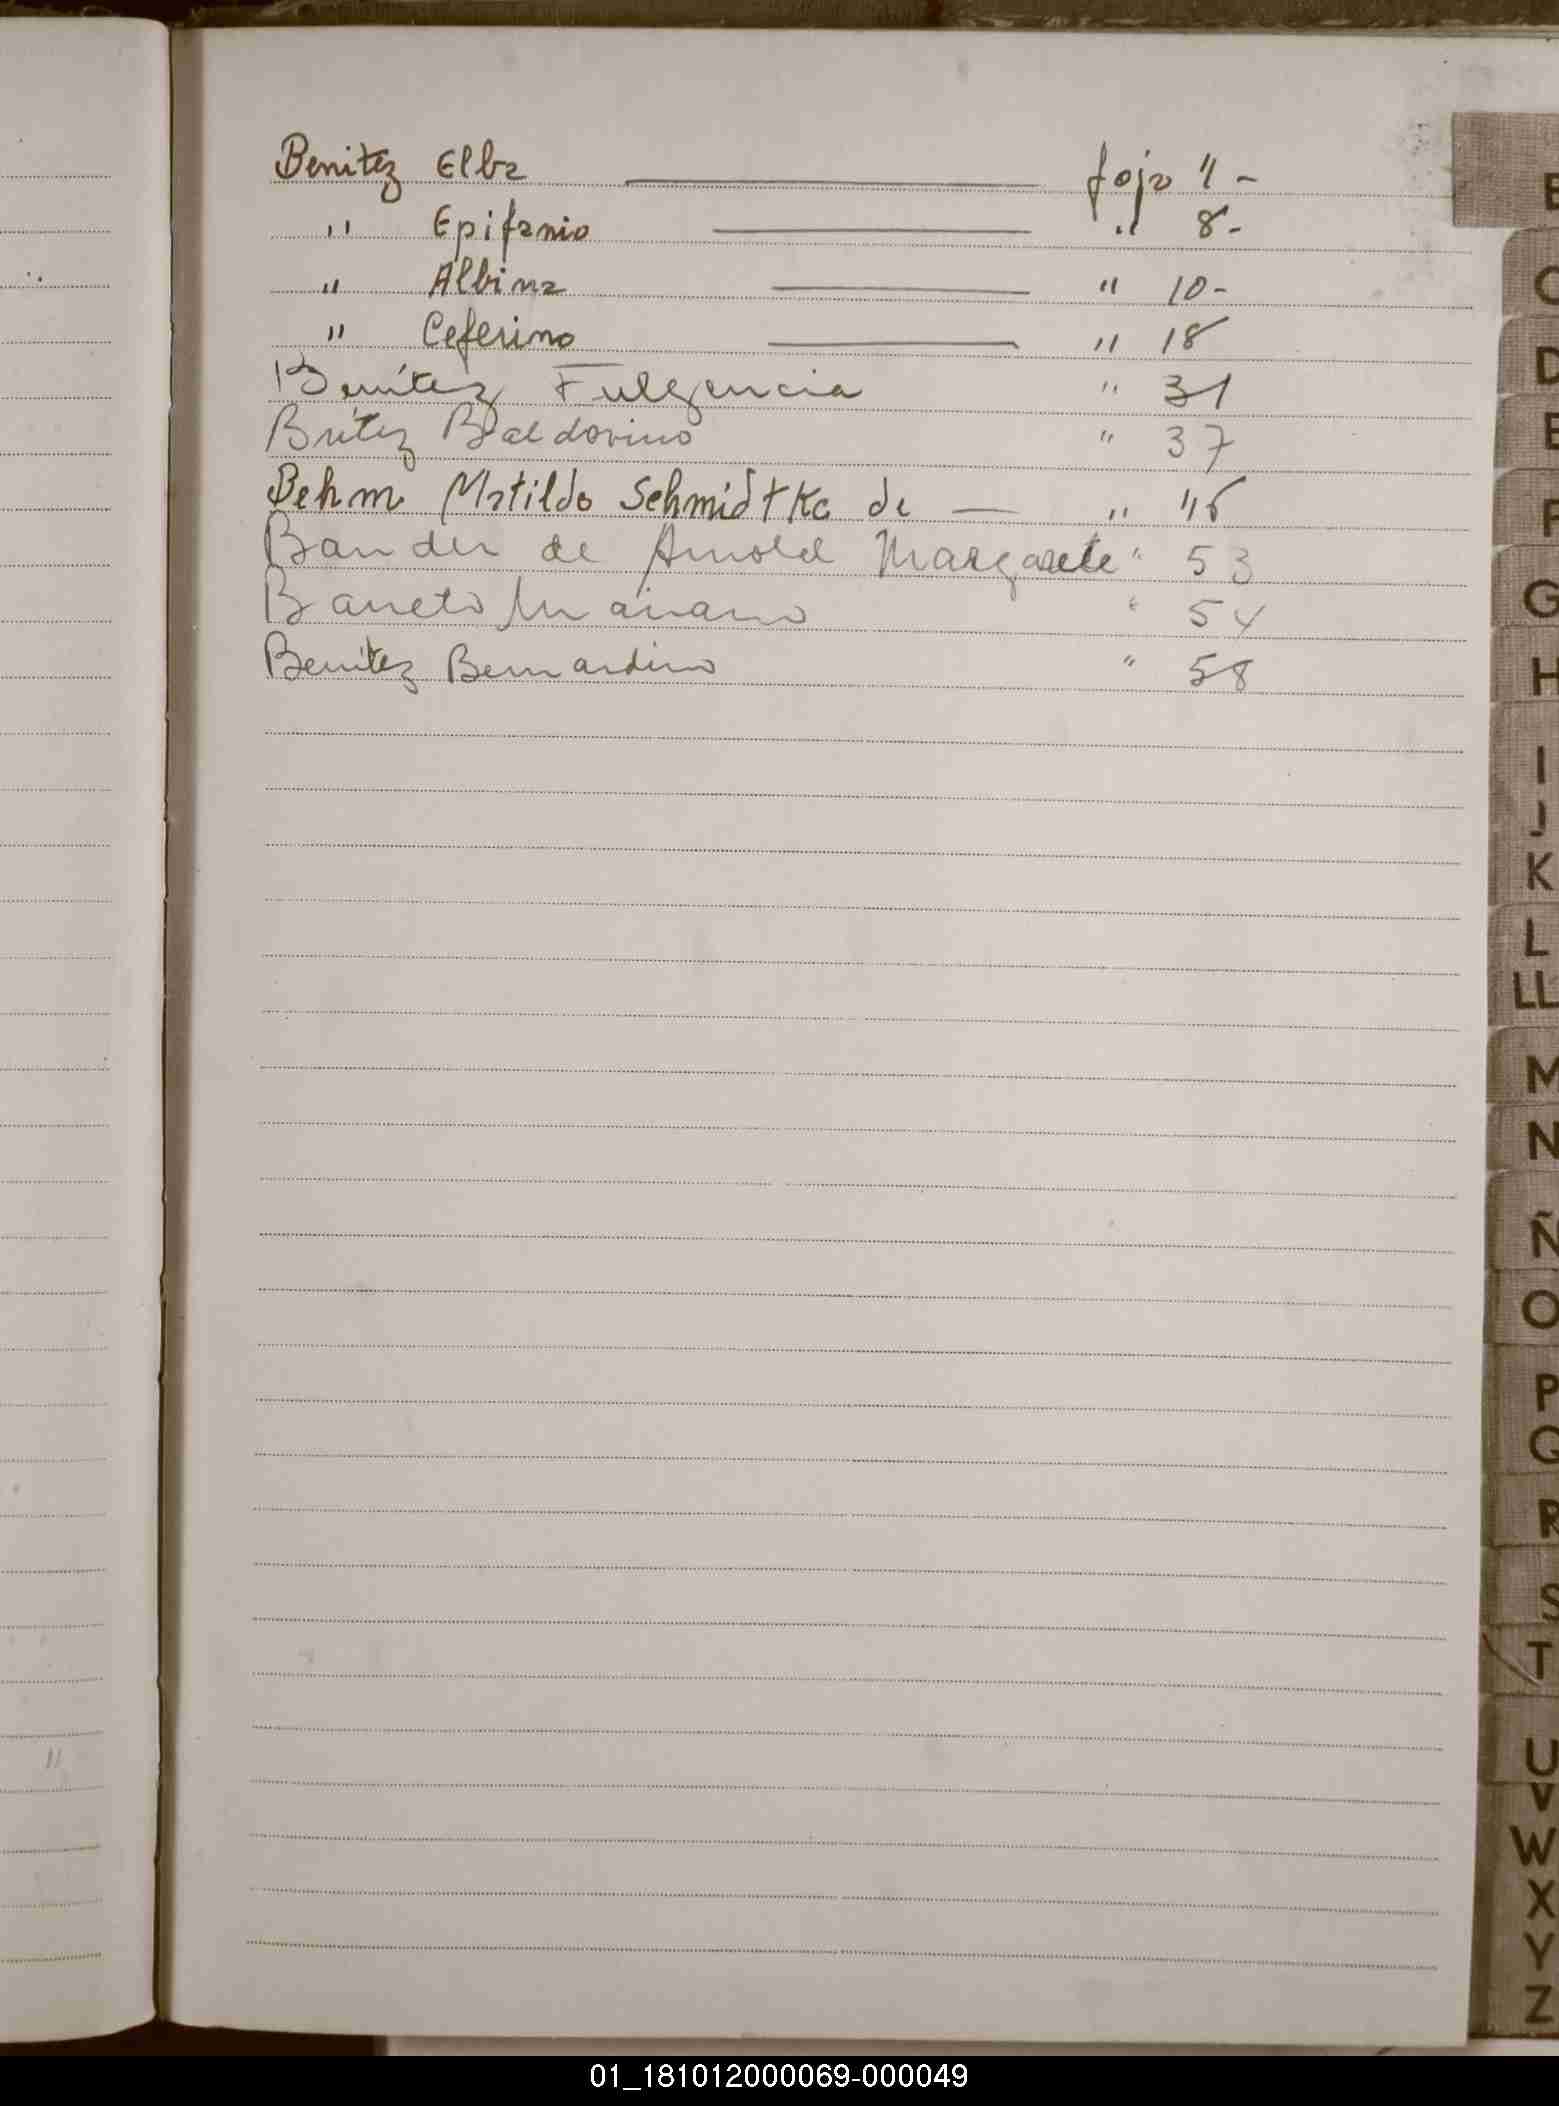 Benitez Elba foja 4 -
" Epifanio " 8 -
" Albina " 10 -
" Ceferino " 18
Benítez Fulgencia " 31
Brítez Baldovino " 37
Behm Matilde Schmidtke de — " 46
Bander de Arnold Margarete " 53
Barreto Mariano " 54
Benítez Bernardino " 58
B
C
D
E
F
G
H
I
J
K
L
LL
M
N
Ñ
O
P
Q
R
S
T
U
V
W
X
Y
Z
"
01_181012000069-000049